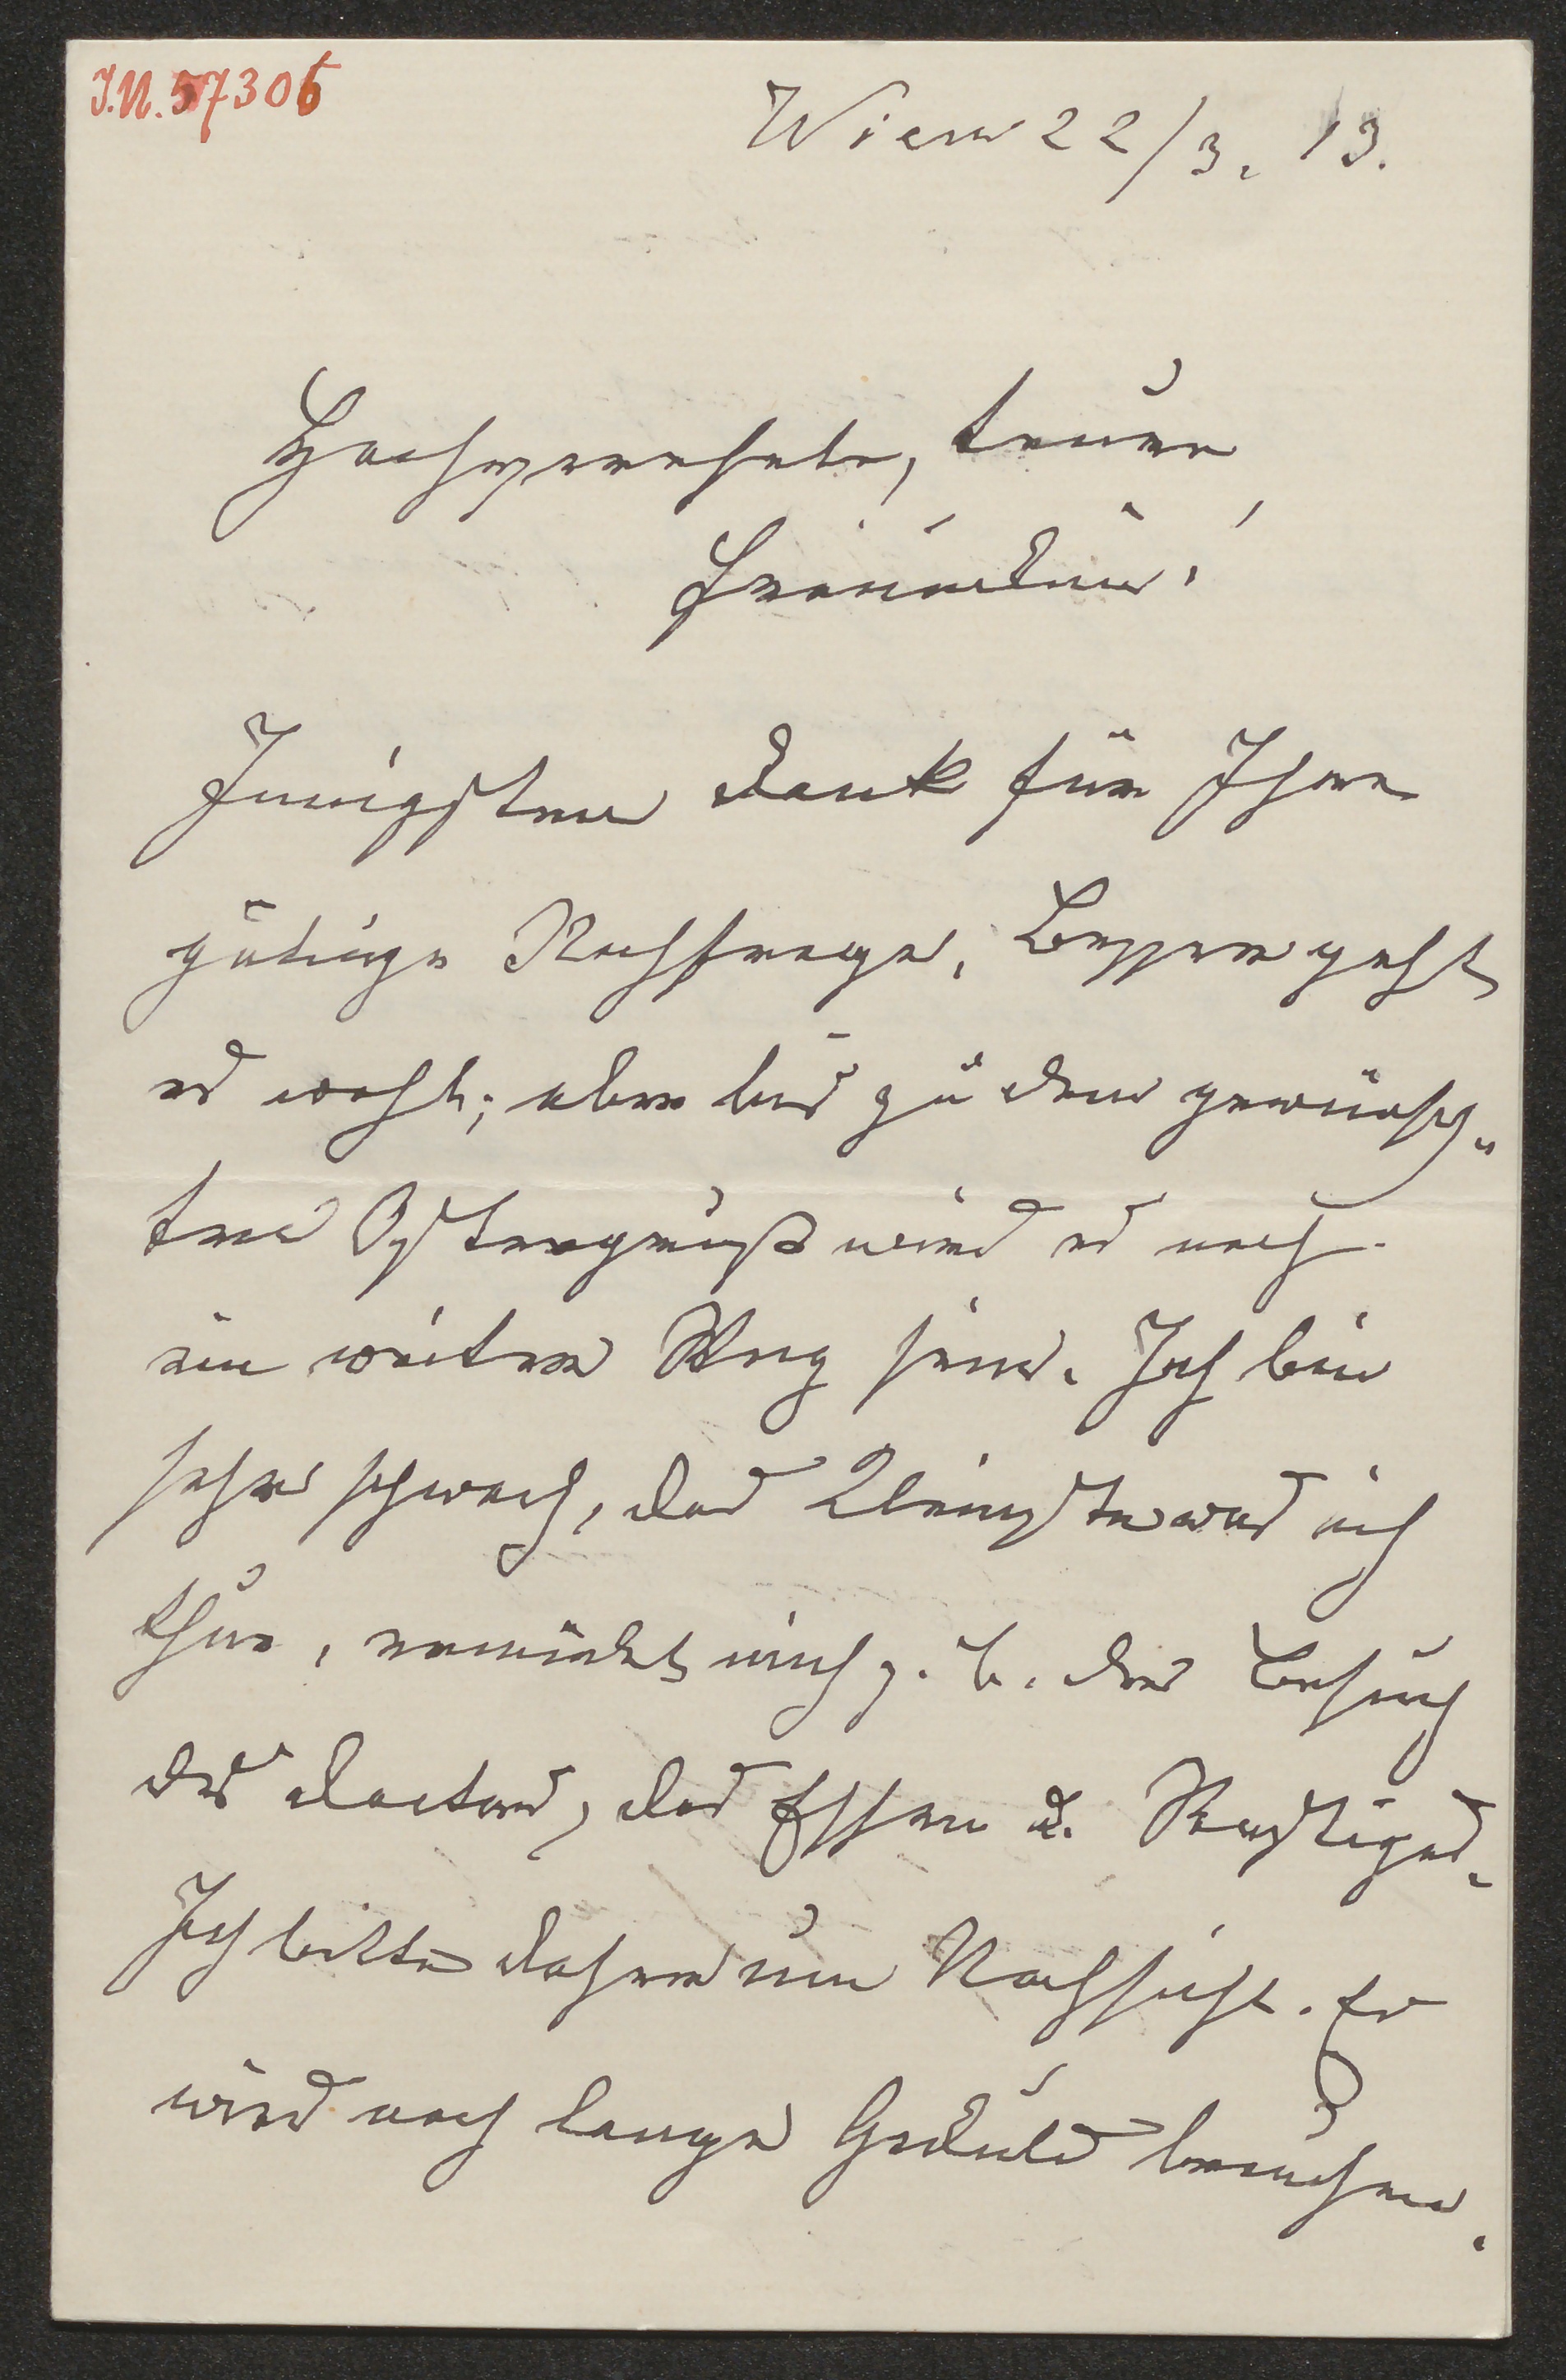 J.N. 57306
Wien 22/3. 13.
Hochverehrte, teure
Freundin!
Innigsten Dank für Ihre
gütige Nachfrage. Besser geht
es wohl; aber bis zu dem gewünsch-
ten Ostergruß wird es noch
ein weiter Weg sein. Ich bin
sehr schwach, das Kleinste was ich
thue, ermüdet mich z. B. der Besuch
des Doctors, das Essen u.
Ich bitte daher um Nachsicht. Es
wird noch lange Geduld brauchen.